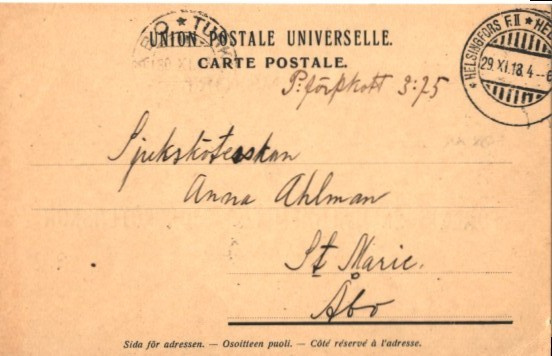 UNION POSTALE UNIVERSELLE.
CARTE POSTALE.
ÅBO * TURKU
HELSINGFORS F.II * HEL
29.XI.18.4
P:förskott 3:75
Sjuksköterskan
Anna Ahlman
St Marie.
Åbo
Sida för adressen. — Osoitteen puoli. — Côté réservé à l'adresse.